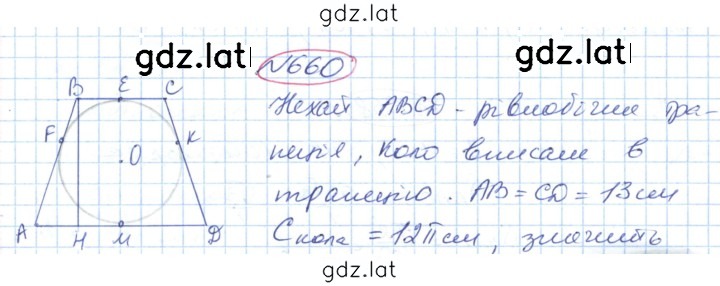 gdz.lat
gdz.lat
gdz.lat
№660
B E C
F K
.O
A H M D
Нехай ABCD - рівнобічна тра-
пеція, коло вписане в
трапецію. AB = CD = 13 см
Cкола = 12π см, значить
gdz.lat